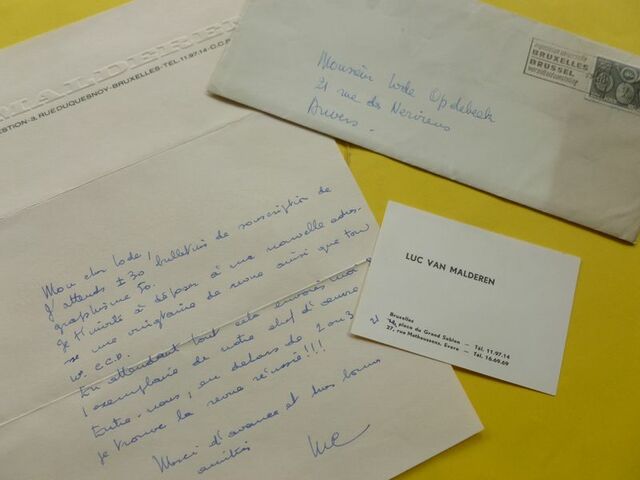 MALDEREN
ESTION-3, RUE DUQUESNOY-BRUXELLES-TEL.11.97.14-C.C.P.
Mon cher Lode,
J'attends ± 30 bulletins de souscription de
graphisme 70.
Je t'invite à déposer à ma nouvelle adres-
se une vingtaine de revue ainsi que ton
n° C.C.P.
En attendant tout cela envois moi
1 exemplaire de votre chef d'œuvre
Entre-nous, en dehors de 2 ou 3
je trouve la revue réussie!!!
Merci d'avance et mes bonnes
amitiés
Luc
BRUXELLES
BRUSSEL
Monsieur Lode Opdebeek
21 rue des Nerviens
Anvers.
LUC VAN MALDEREN
Bruxelles
place du Grand Sablon - Tél. 11.97.14
27, rue Mathoussens, Evere - Tél. 16.69.69